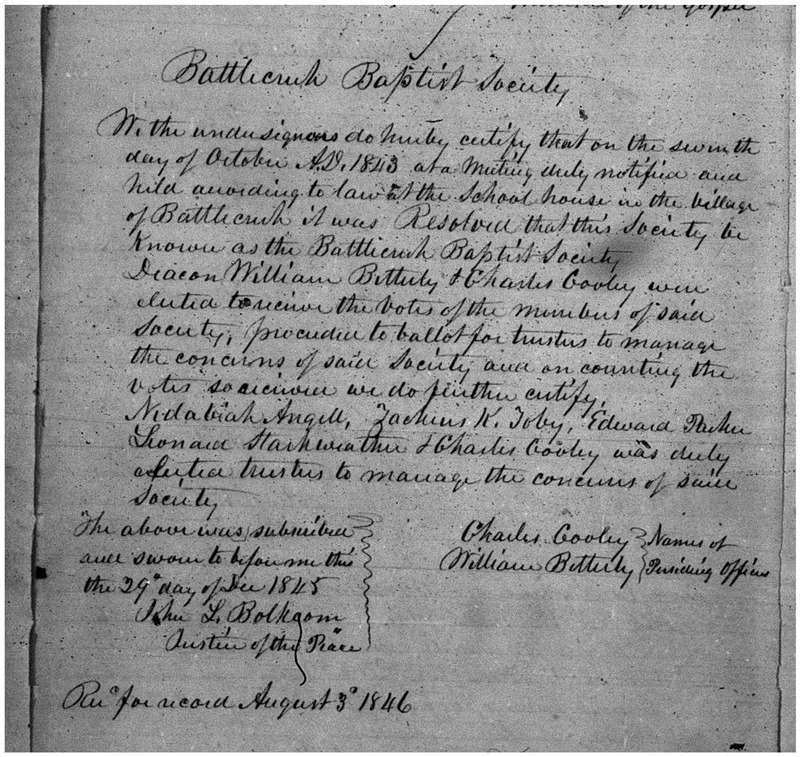 of the Gospel
Battlecreek Baptist Society
We the undersigners do hereby certify that on the seventh
day of October A.D. 1843 at a meeting duly notified and
held according to law at the School house in the village
of Battlecreek it was Resolved that this Society be
Known as the Battlecreek Baptist Society
Deacon William Betterly & Charles Cooley were
elected to receive the votes of the members of said
Society, proceeded to ballot for trustees to manage
the concerns of said Society and on counting the
votes so received we do further certify,
Nedabiah Angell, Zacheus K. Toby, Edward Packer
Leonard Starkweather & Charles Cooley was duly
elected trustees to manage the concerns of said
Society
The above was subscribed
and sworn to before me this
the 29th day of Dec 1845
John L. Bolkcom
Justice of the Peace
Charles Cooley Names of
William Betterly Presiding Officers
Recd for record August 3d 1846